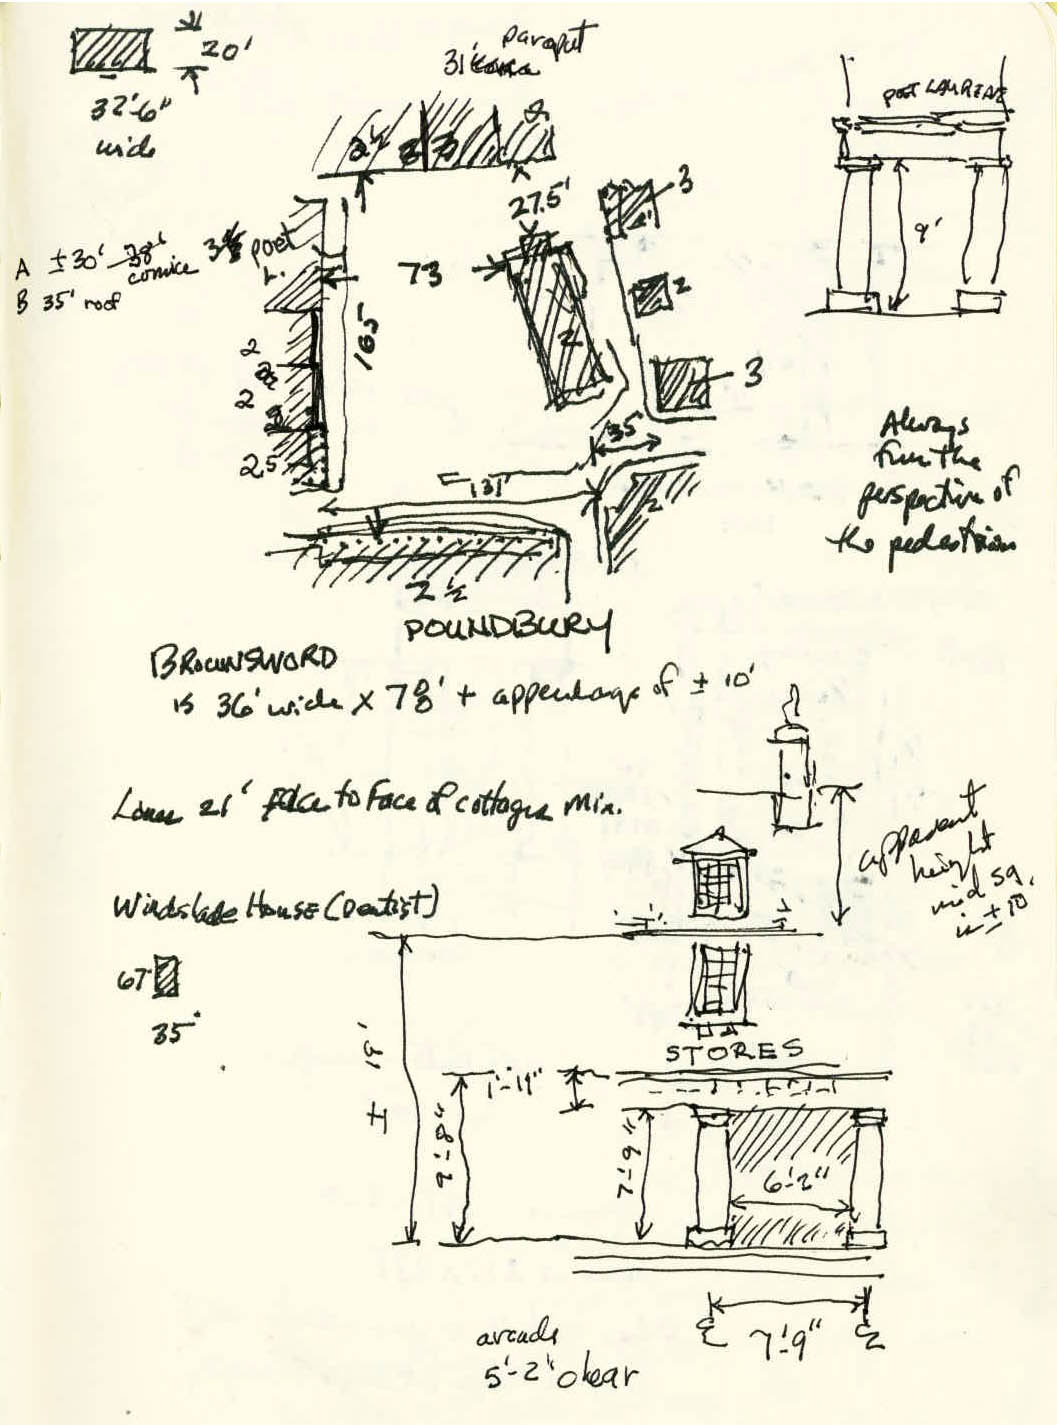 20'
32'-6"
wide
parapet
31'
2½
3
27.5'
3
2
3
A ±30' 38'
cornice
B 35' roof
Poet
L.
73
165
2
2
2
2.5
35'
131'
2
2½
POUNDBURY
POET LAUREATE
9'
Always
from the
perspective of
the pedestrian
BROWNSWORD
is 36' wide x 78' + appendage of ± 10'
Lanes 21' Face to Face of cottages Min.
Windslade House (Dentist)
67'
35'
apparent
height
mid sq.
is ± 10
± 19'
STORES
1'-11"
9'-8"
7'-9"
6'-2"
7'-9"
arcade
5'-2" clear